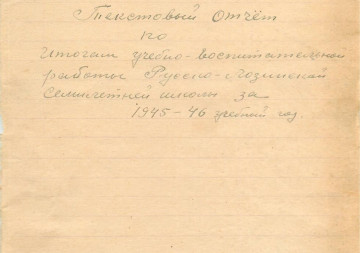 Текстовый отчёт
по
итогам учебно-воспитательной
работы Русско-Лозинской
семилетней школы за
1945-46 учебный год.